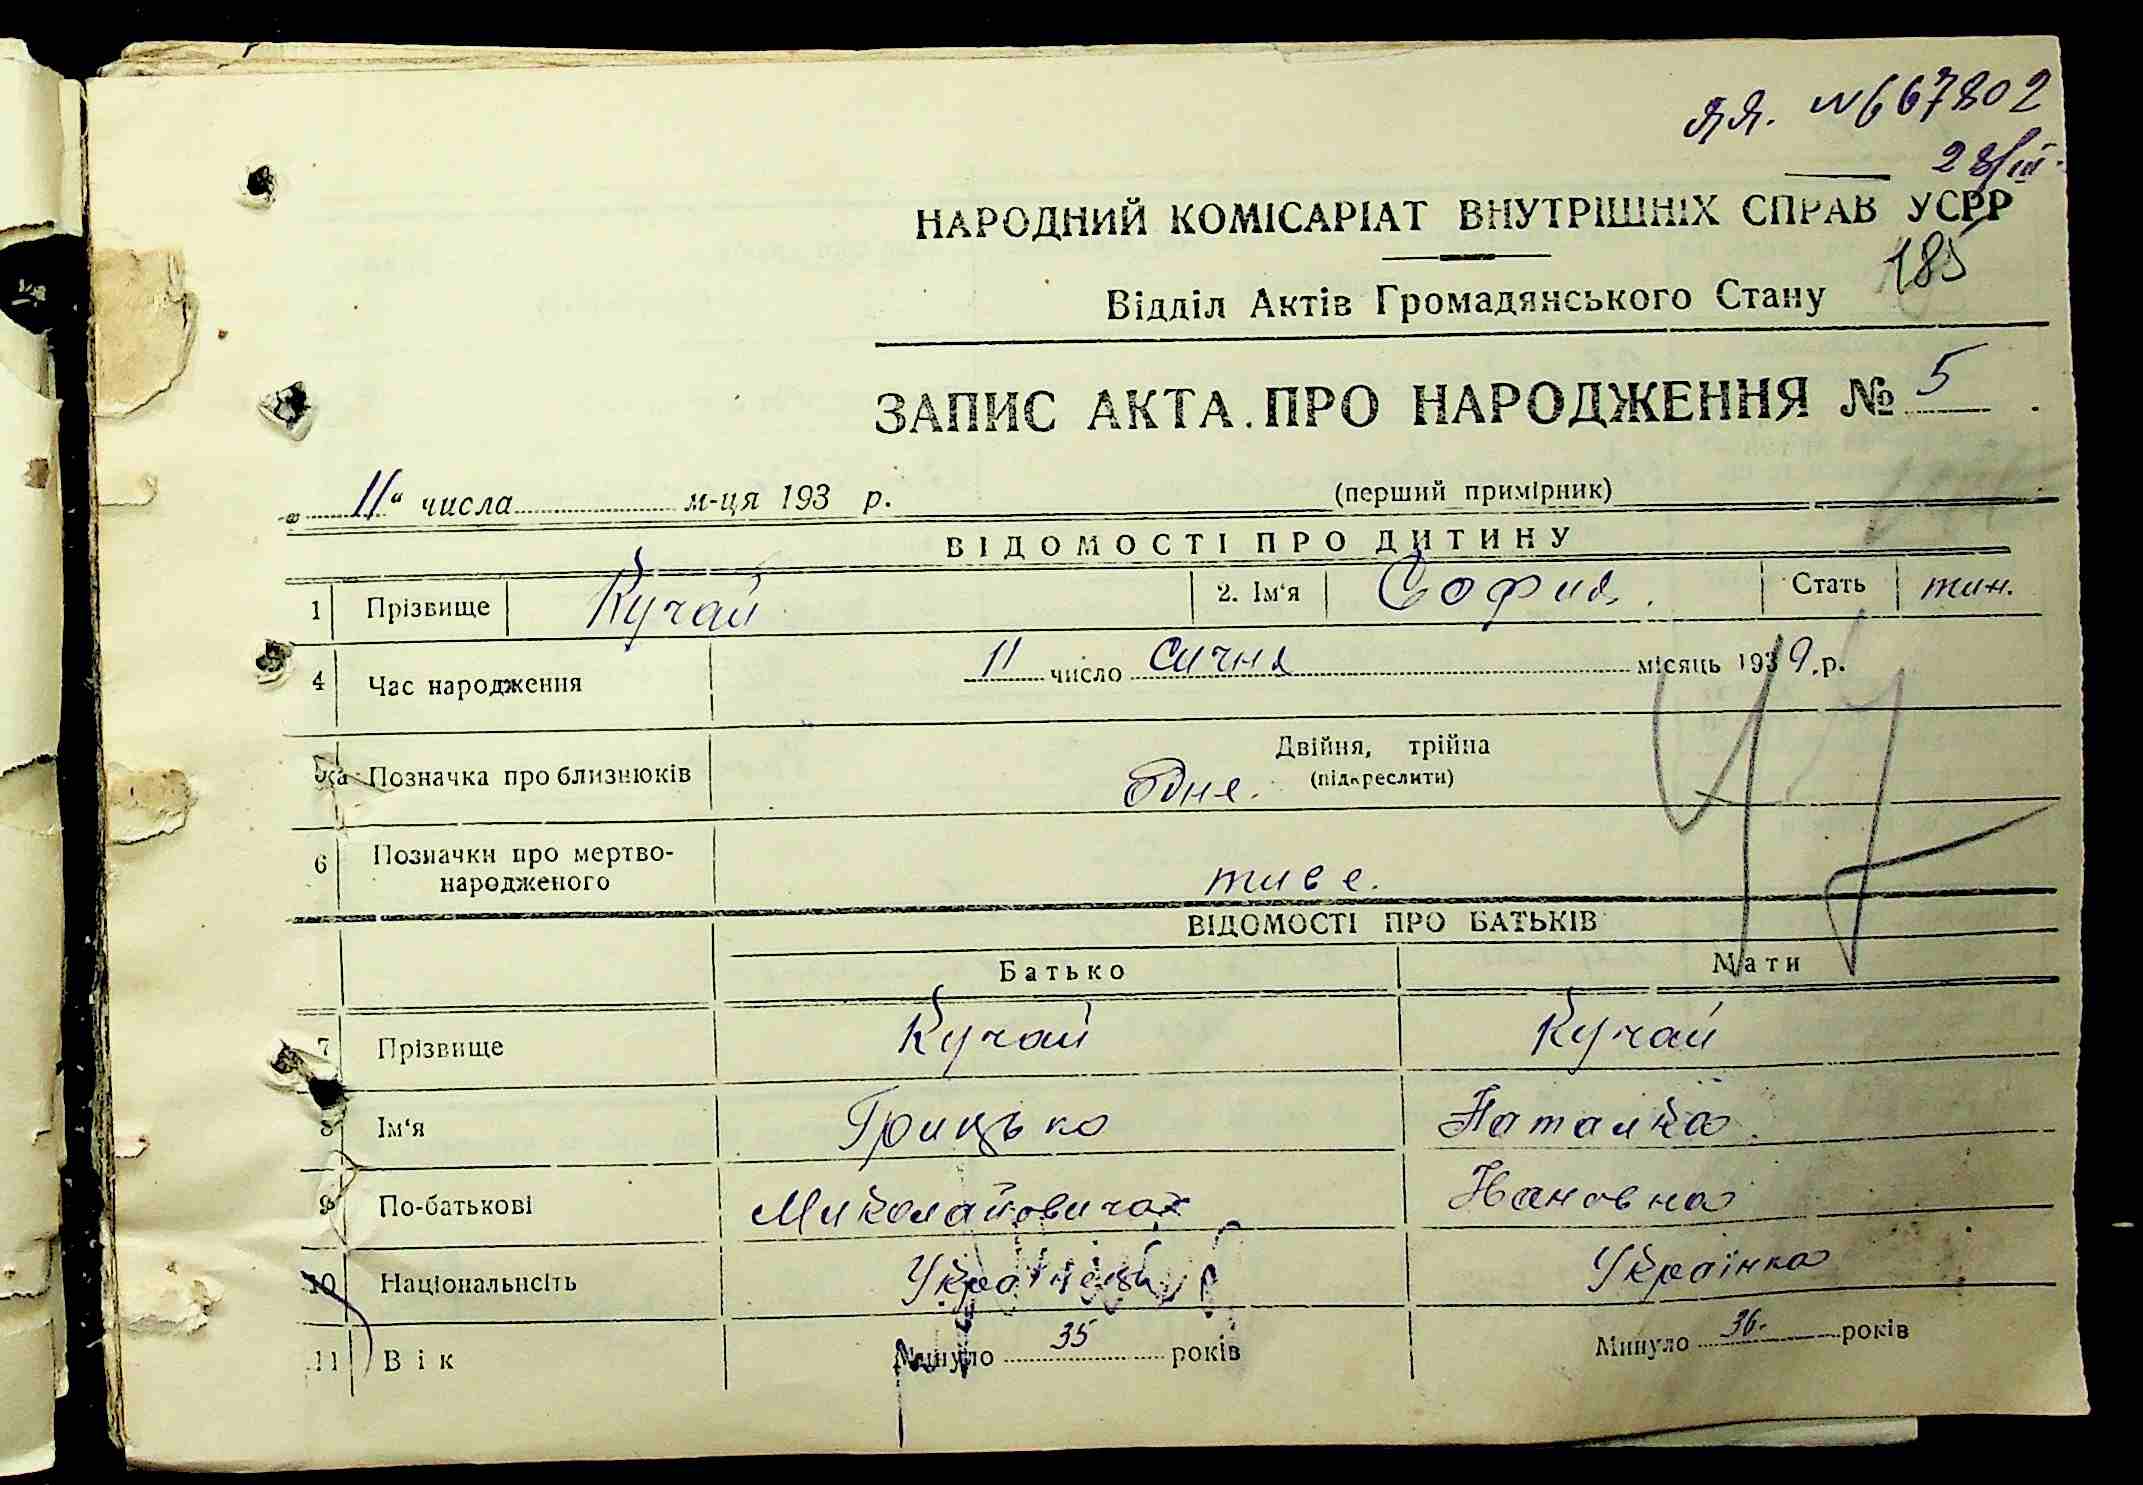 ЯЯ. №667802
28/III
НАРОДНИЙ КОМІСАРІАТ ВНУТРІШНІХ СПРАВ УСРР
185
Відділ Актів Громадянського Стану
ЗАПИС АКТА ПРО НАРОДЖЕННЯ № 5
„ 11 “ числа м-ця 193 р. (перший примірник)
ВІДОМОСТІ ПРО ДИТИНУ
1 Прізвище Кучай 2. Ім'я София. Стать жин.
4 Час народження 11 число сичня місяць 1939 р.
Позначка про близнюків Двійня, трійна
одне. (підкреслити)
6 Позначки про мертво-
народженого живе.
ВІДОМОСТІ ПРО БАТЬКІВ
Батько Мати
7 Прізвище Кучай Кучай
8 Ім'я Грицько Наталка
9 По-батькові Миколайович Ивановна
10 Національнсіть Українець Українка
11 Вік Минуло 35 років Минуло 36 років